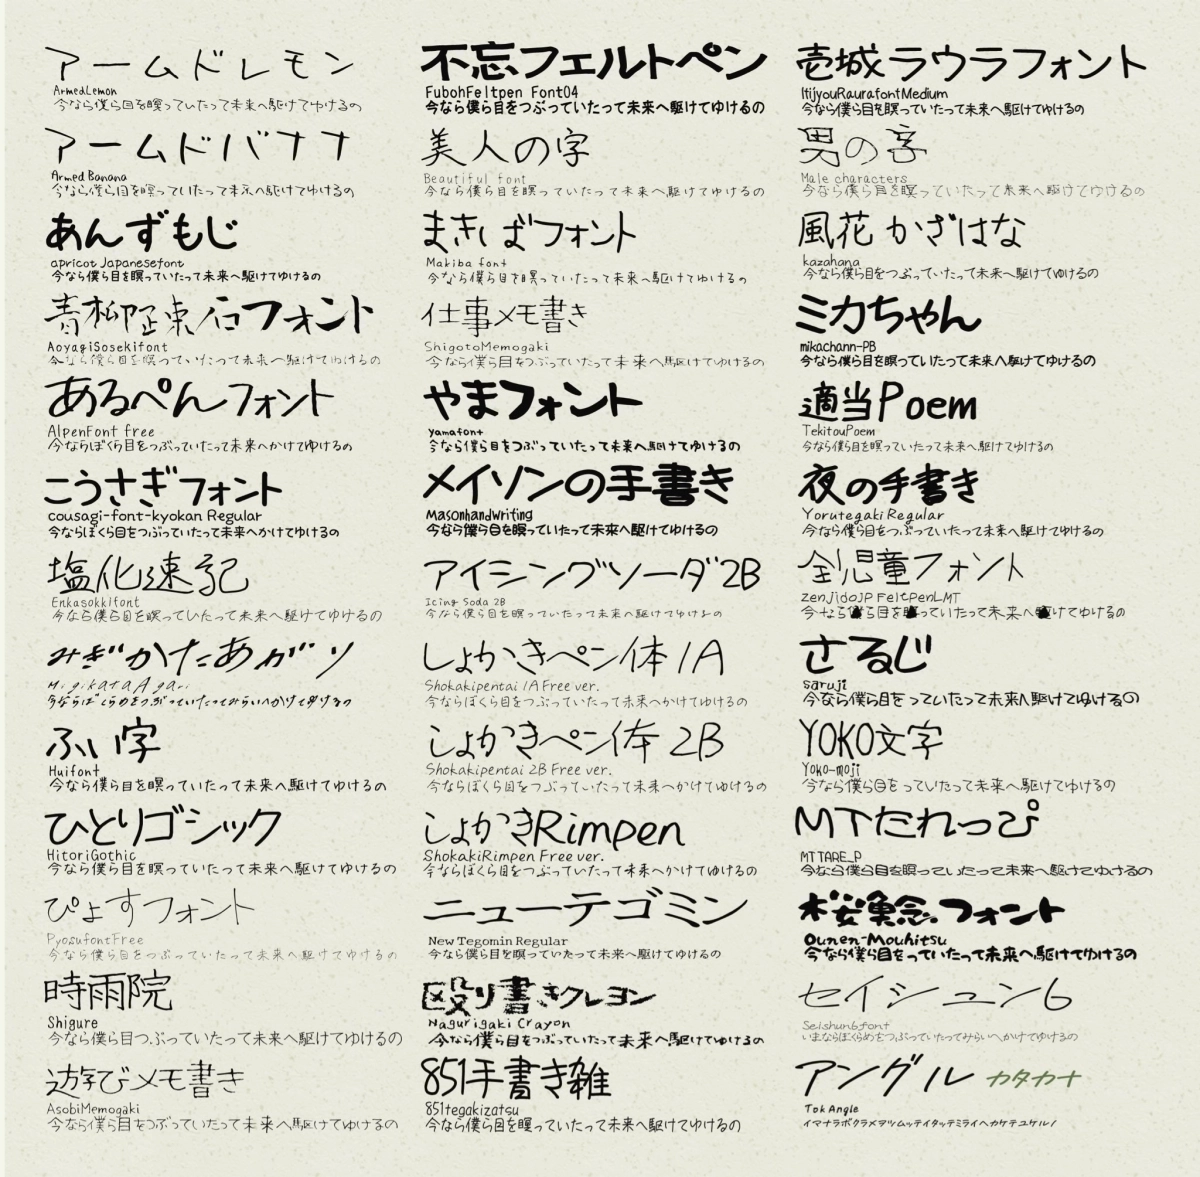 アームドレモン
ArmedLemon
今なら僕ら目を瞑っていたって未来へ駆けてゆけるの
アームドバナナ
Armed Banana
今なら僕ら目を瞑っていたって未来へ駆けてゆけるの
あんずもじ
apricot Japanesefont
今なら僕ら目を瞑っていたって未来へ駆けてゆけるの
青柳疎石フォント
AoyagiSosekifont
今なら僕ら目を瞑っていたって未来へ駆けてゆけるの
あるぺんフォント
AlpenFont free
今ならぼくら目をつぶっていたって未来へかけてゆけるの
こうさぎフォント
cousagi-font-kyokan Regular
今ならぼくら目をつぶっていたって未来へかけてゆけるの
塩化速記
Enkasokkifont
今なら僕ら目を瞑っていたって未来へ駆けてゆけるの
みぎかたあがり
MigikataAgari
今ならぼくらめをつぶっていたってみらいへかけてゆけるの
ふい字
Huifont
今なら僕ら目を瞑っていたって未来へ駆けてゆけるの
ひとりゴシック
HitoriGothic
今なら僕ら目を瞑っていたって未来へ駆けてゆけるの
ぴょすフォント
PyosufontFree
今なら僕ら目をつぶっていたって未来へ駆けてゆけるの
時雨院
Shigure
今なら僕ら目つぶっていたって未来へ駆けてゆけるの
遊びメモ書き
AsobiMemogaki
今なら僕ら目をつぶっていたって未来へ駆けてゆけるの
不忘フェルトペン
FubohFeltpen Font04
今なら僕ら目をつぶっていたって未来へ駆けてゆけるの
美人の字
Beautiful font
今なら僕ら目を瞑っていたって未来へ駆けてゆけるの
まきばフォント
Makiba font
今なら僕ら目を瞑っていたって未来へ駆けてゆけるの
仕事メモ書き
ShigotoMemogaki
今なら僕ら目をつぶっていたって未来へ駆けてゆけるの
やまフォント
Yamafont
今なら僕ら目をつぶっていたって未来へ駆けてゆけるの
メイソンの手書き
MasonhandWriting
今なら僕ら目を瞑っていたって未来へ駆けてゆけるの
アイシングソーダ2B
Icing Soda 2B
今なら僕ら目を瞑っていたって未来へ駆けてゆけるの
しょかきペン体1A
Shokakipentai 1A Free ver.
今ならぼくら目をつぶっていたって未来へかけてゆけるの
しょかきペン体 2B
Shokakipentai 2B Free ver.
今ならぼくら目をつぶっていたって未来へかけてゆけるの
しょかきRimpen
ShokakiRimpen Free ver.
今ならぼくら目をつぶっていたって未来へかけてゆけるの
ニューテゴミン
New Tegomin Regular
今なら僕ら目を瞑っていたって未来へ駆けてゆけるの
殴り書きクレヨン
Nagurigaki Crayon
今なら僕ら目をつぶっていたって未来へ駆けてゆけるの
851手書き雑
851tegakizatsu
今なら僕ら目を瞑っていたって未来へ駆けてゆけるの
壱城ラウラフォント
ItijyouRaurafontMedium
今なら僕ら目を瞑っていたって未来へ駆けてゆけるの
男の字
Male characters
今なら僕ら目を瞑っていたって未来へ駆けてゆけるの
風花 かざはな
kazahana
今なら僕ら目をつぶっていたって未来へ駆けてゆけるの
ミカちゃん
mikachann-PB
今なら僕ら目を瞑っていたって未来へ駆けてゆけるの
適当Poem
TekitouPoem
今なら僕ら目を瞑っていたって未来へ駆けてゆけるの
夜の手書き
YorutegakiRegular
今なら僕ら目をつぶっていたって未来へ駆けてゆけるの
全児童フォント
ZenjidoJP FeltPenLMT
今なら ら目を っていたって未来へ けてゆけるの
さるじ
saruji
今なら僕ら目を っていたって未来へ駆けてゆけるの
YOKO文字
Yoko-moji
今なら僕ら目を っていたって未来へ駆けてゆけるの
MTたれっぴ
MTTARE_P
今なら僕ら目を瞑っていたって未来へ駆けてゆけるの
フォント
Ounen-Mouhitsu
今なら僕ら目を っていたって未来へ駆けてゆけるの
セイシュン6
Seishun6font
いまならぼくらめをつぶっていたってみらいへかけてゆけるの
アングル カタカナ
TokAngle
イマナラボクラメヲツムッテイタッテミライヘカケテユケルノ